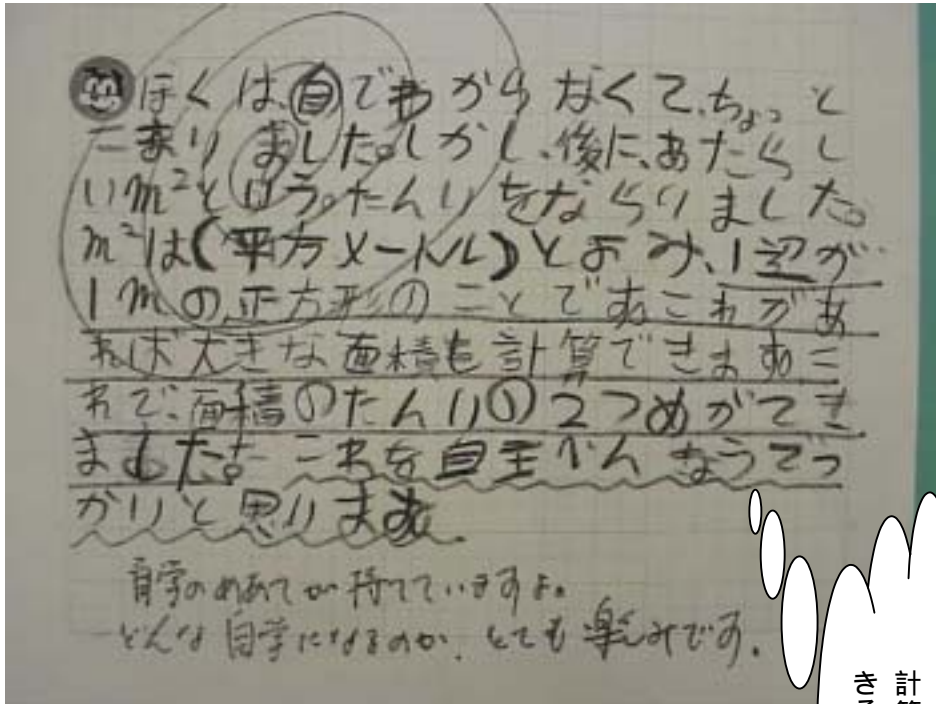 ぼくは、自でわからなくて、ちょっと
こまりました。しかし、後に、あたらし
いm²というたんいをならいました。
m²は(平方メートル)とよみ、1辺が
1mの正方形のことです。これがあ
れば大きな面積も計算できます。こ
れで、面積のたんいの2つめができ
ました。これを自主べんきょうでつ
かいと思います。
自学のめあてが持てていますよ。
どんな自学になるのか、とても楽しみです。
計算
きる